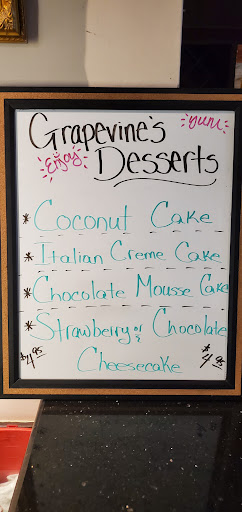 Grapevine's
yum
Enjoy
Desserts
* Coconut Cake
* Italian Creme Cake
* Chocolate Mousse Cake
* Strawberry or Chocolate
Cheesecake
$4.95
$4.95